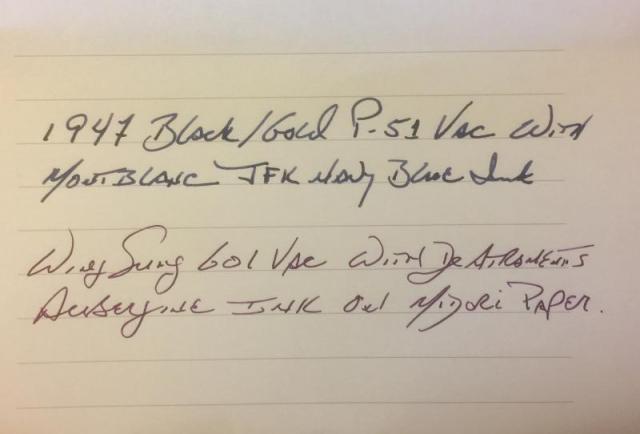 1947 Black/Gold P-51 Vac With
MontBlanc JFK Navy Blue Ink
Wing Sung 601 Vac With DeAtraments
Aubergine Ink on Midori Paper.